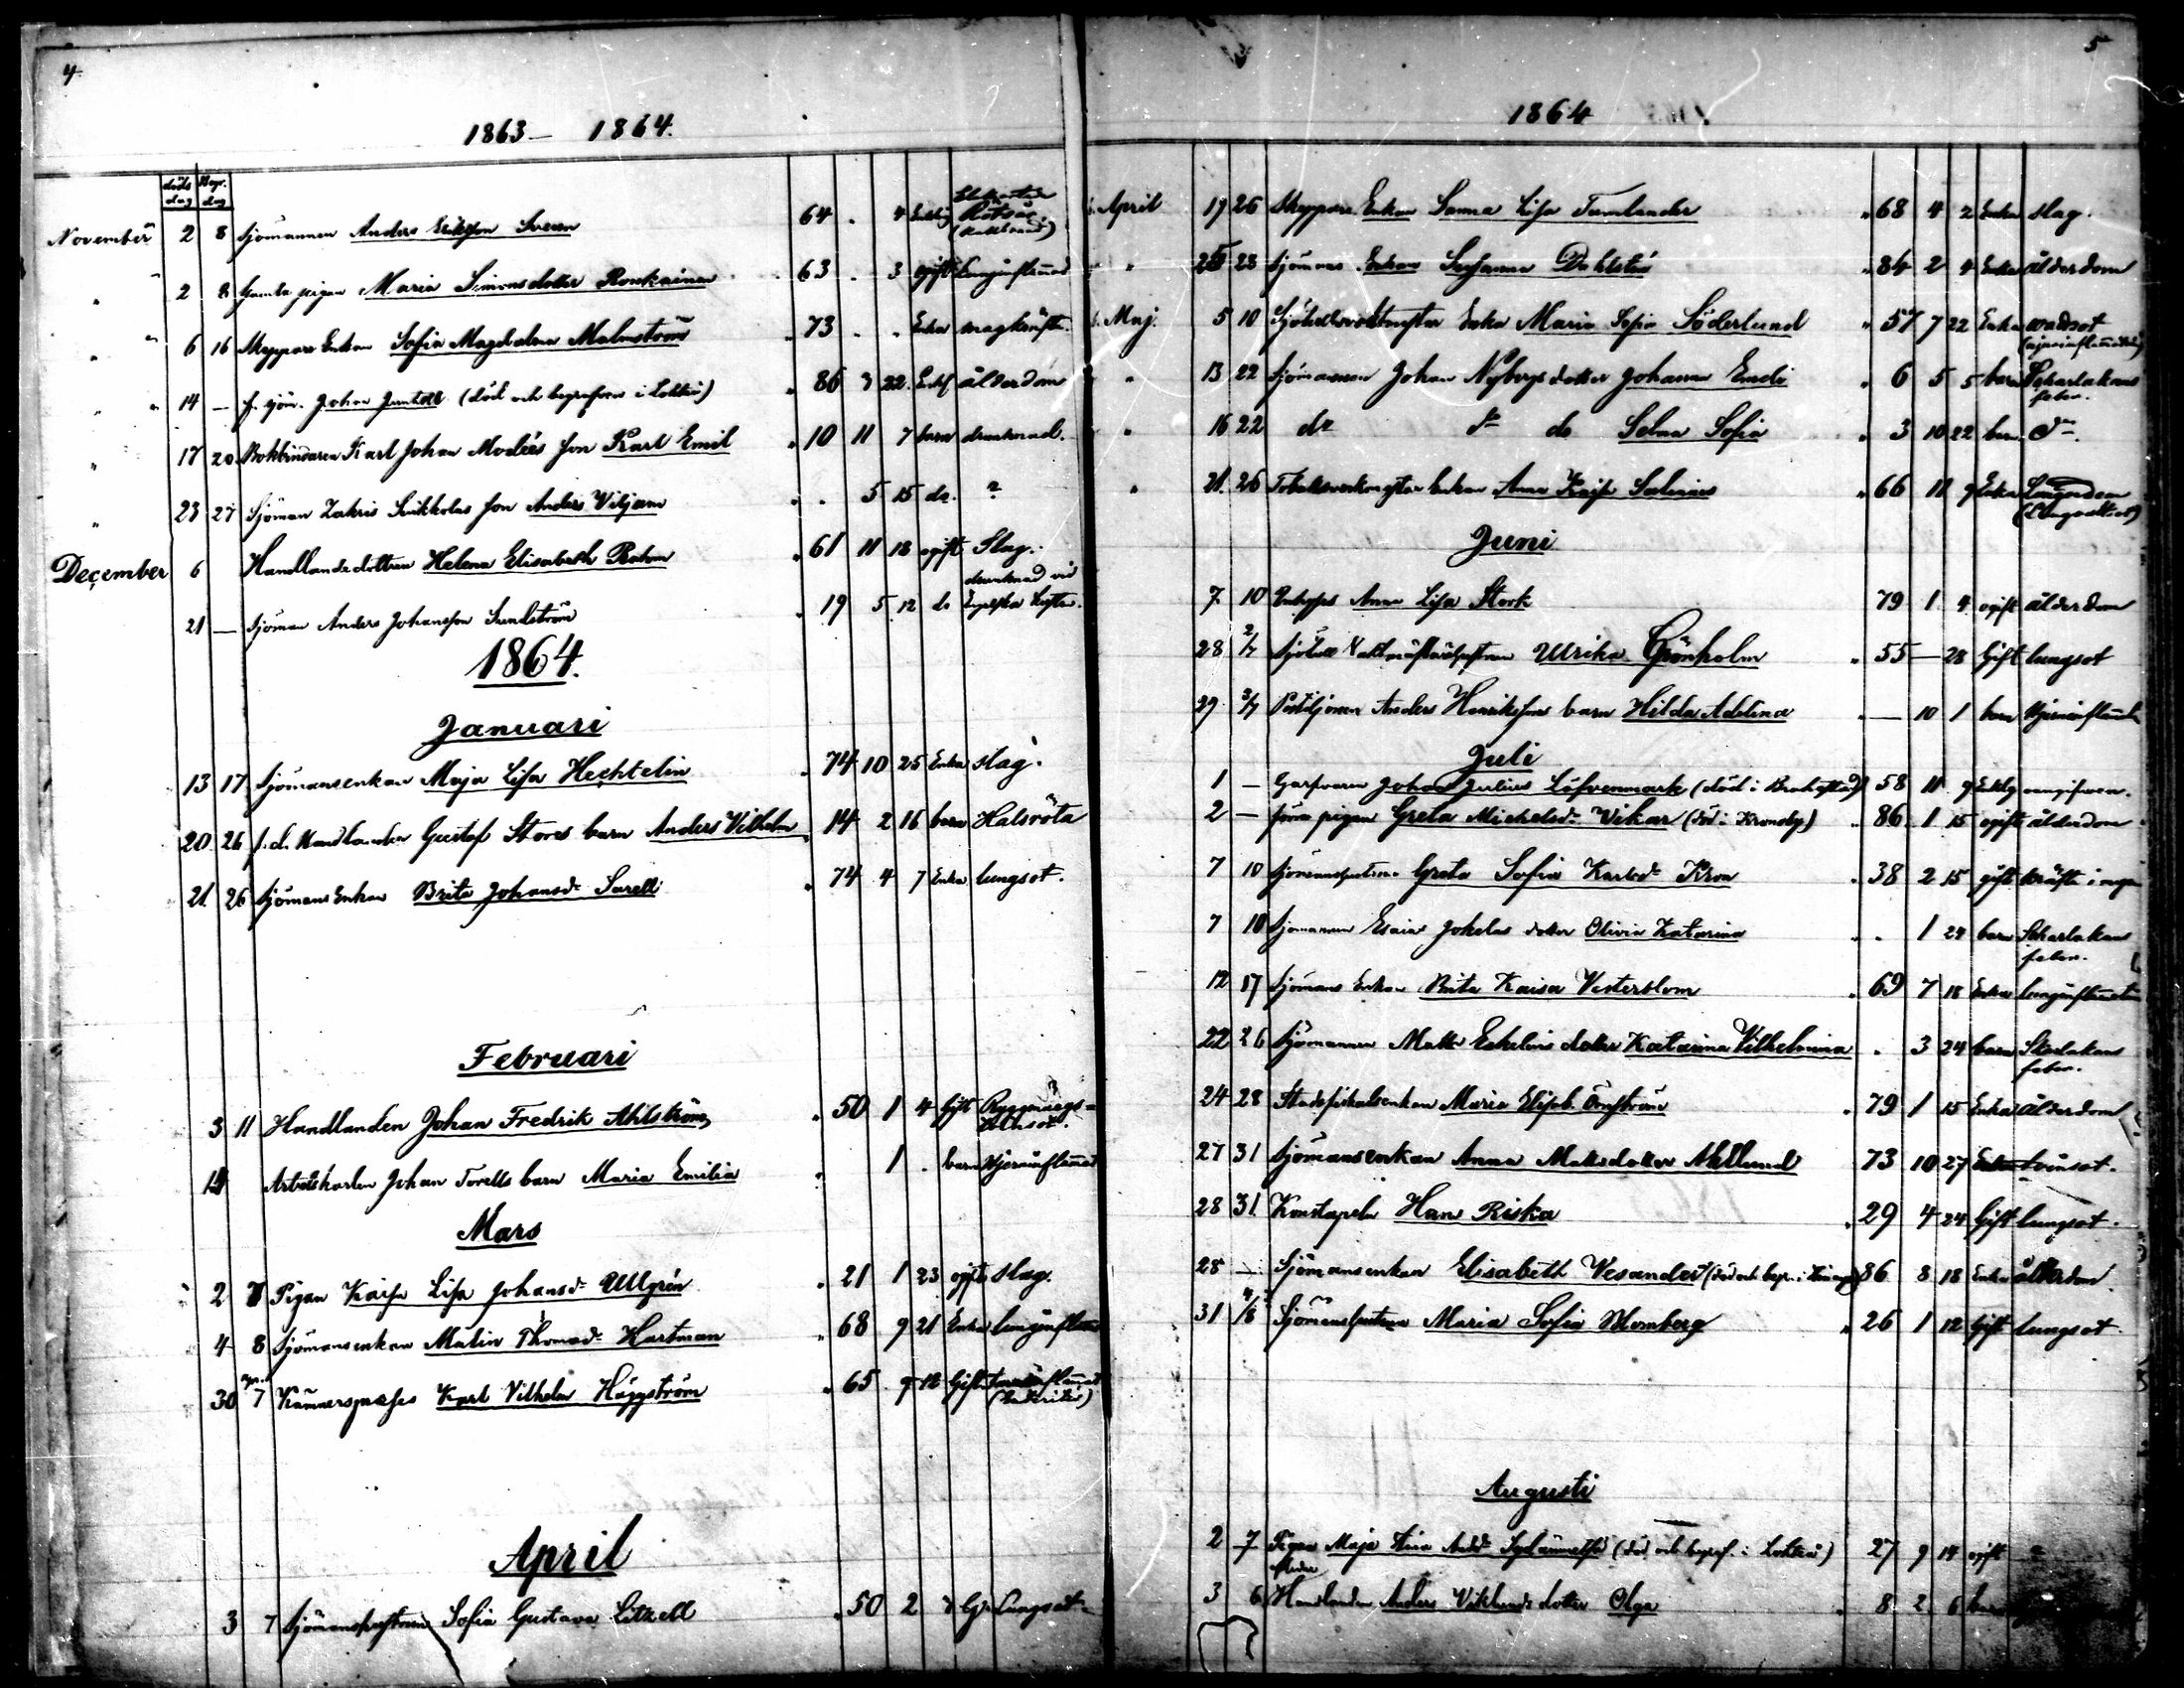 4
1863 — 1864.
döds dag Begr. dag
November 2 8 Sjömannen Anders Eriksson 64 . 4 Enkling
" 2 8 Gamla pigan Maria Simonsdotter Ronkainen 63 . 3 ogift Lunginflamad
" " 6 16 Skeppare Enkan Sofia Magdalena Malmström 73 . . Enka magkräfta.
" " 14 — f. sjöm. Johan (död och begrafven i Lohteå) 86 3 22 Enkl ålderdom
" 17 20 Bokbindaren Karl Johan Modées son Karl Emil 10 11 7 barn drunknad.
" 23 27 Sjöman Zakris son Anders Viljam . . 5 15 do. ?
December 6 Handlandedottren Helena Elisabeth 61 11 18 ogift Slag.
21 — Sjöman Anders Johansson Sundström 19 5 12 do drunknad vid Engelska kusten.
1864.
Januari
13 17 Sjömansenkan Maja Lisa Hechtelin 74 10 25 Enka slag.
20 26 f.d. Handlanden Gustaf Stores barn Anders Vilhelm 14 2 16 barn Halsröta
21 26 Sjömans Enkan Brita Johansdr Sarell 74 4 7 Enka lungsot.
Februari
3 11 Handlanden Johan Fredrik Ahlström 50 1 4 Gift Ryggmärgs=
14 Arbetskarlen Johan Torells barn Maria Emilia 1 . barn Hjerninflamat
Mars
2 8 Pigan Kaisa Lisa Johansdr Ullgrén 21 1 23 ogift slag.
4 8 Sjömansenkan Malin Thomasdr Hartman 68 9 21 Enka lunginflam
30 apr. 7 Kämnerspreses Karl Vilhelm Häggström 65 9 12 Gift (Enterites)
April
3 7 Sjömanshustrun Sofia Gustava Litzell 50 2 3 G. Lungsot
5
1864
April 19 26 Skeppare Enkan Sanna Lisa Tamlander 68 4 2 Enka slag.
" 25 28 Sjömans Enkan Susanna Dahlstén 84 2 4 Enka ålderdom
Maj. 5 10 Enka Maria Sofia Söderlund 57 7 22 Enka
" 13 22 Sjömannen Johan Nybergs dotter Johanna Emili 6 5 5 barn Scharlakans feber.
" 16 22 do do do Selma Sofia 3 10 22 barn do.
" 21 26 enkan Anna Kajsa 66 11 9 Enka
Juni
7 10 Anna Lisa Stork 79 1 4 ogift ålderdom
28 2/7 Ulrika Grönholm 55 — 28 Gift lungsot
29 3/7 Postiljonen Anders Henrikssons barn Hilda Adelina — 10 1 barn
Juli
1 — Garfvaren Johan Julius Löfvenmark (död i Brahestad) 58 11 9 Enklg
2 — förra pigan Greta Michelsdr Vikar (död i Kronoby) 86 1 15 ogift ålderdom
7 10 Sjömanshustrun Greta Sofia Karlsdr Kron 38 2 15 gift kräfta i
7 10 Sjömannen Esaias Jokelas dotter Olivia Katarina . 1 24 barn Scharlakans feber.
12 17 Sjömans Enkan Brita Kaisa Vesterblom 69 7 18 Enka lunginflamation
22 26 Sjömannen Matts dotter Katarina Vilhelmina . 3 24 barn Skarlakans feber.
24 28 Stadsfiskalsenkan Maria Elisab. Örnström 79 1 15 Enka ålderdom
27 31 Sjömansenkan Anna Mattsdotter Ahllund 73 10 27 Enka tvinsot.
28 31 Konstapeln Hans Riska 29 4 24 Gift lungsot.
28 — Sjömansenkan Elisabeth Vesander 86 8 18 Enka ålderdom
31 4/8 Sjömanshustrun Maria Sofia Blomberg 26 1 12 Gift lungsot.
Augusti
2 7 Pigan Maja Stina Andersdr (död och begraf. i Lohteå) 27 9 14 ogift "
3 6 Handlanden Anders Viklunds dotter Olga 8 2 6 barn